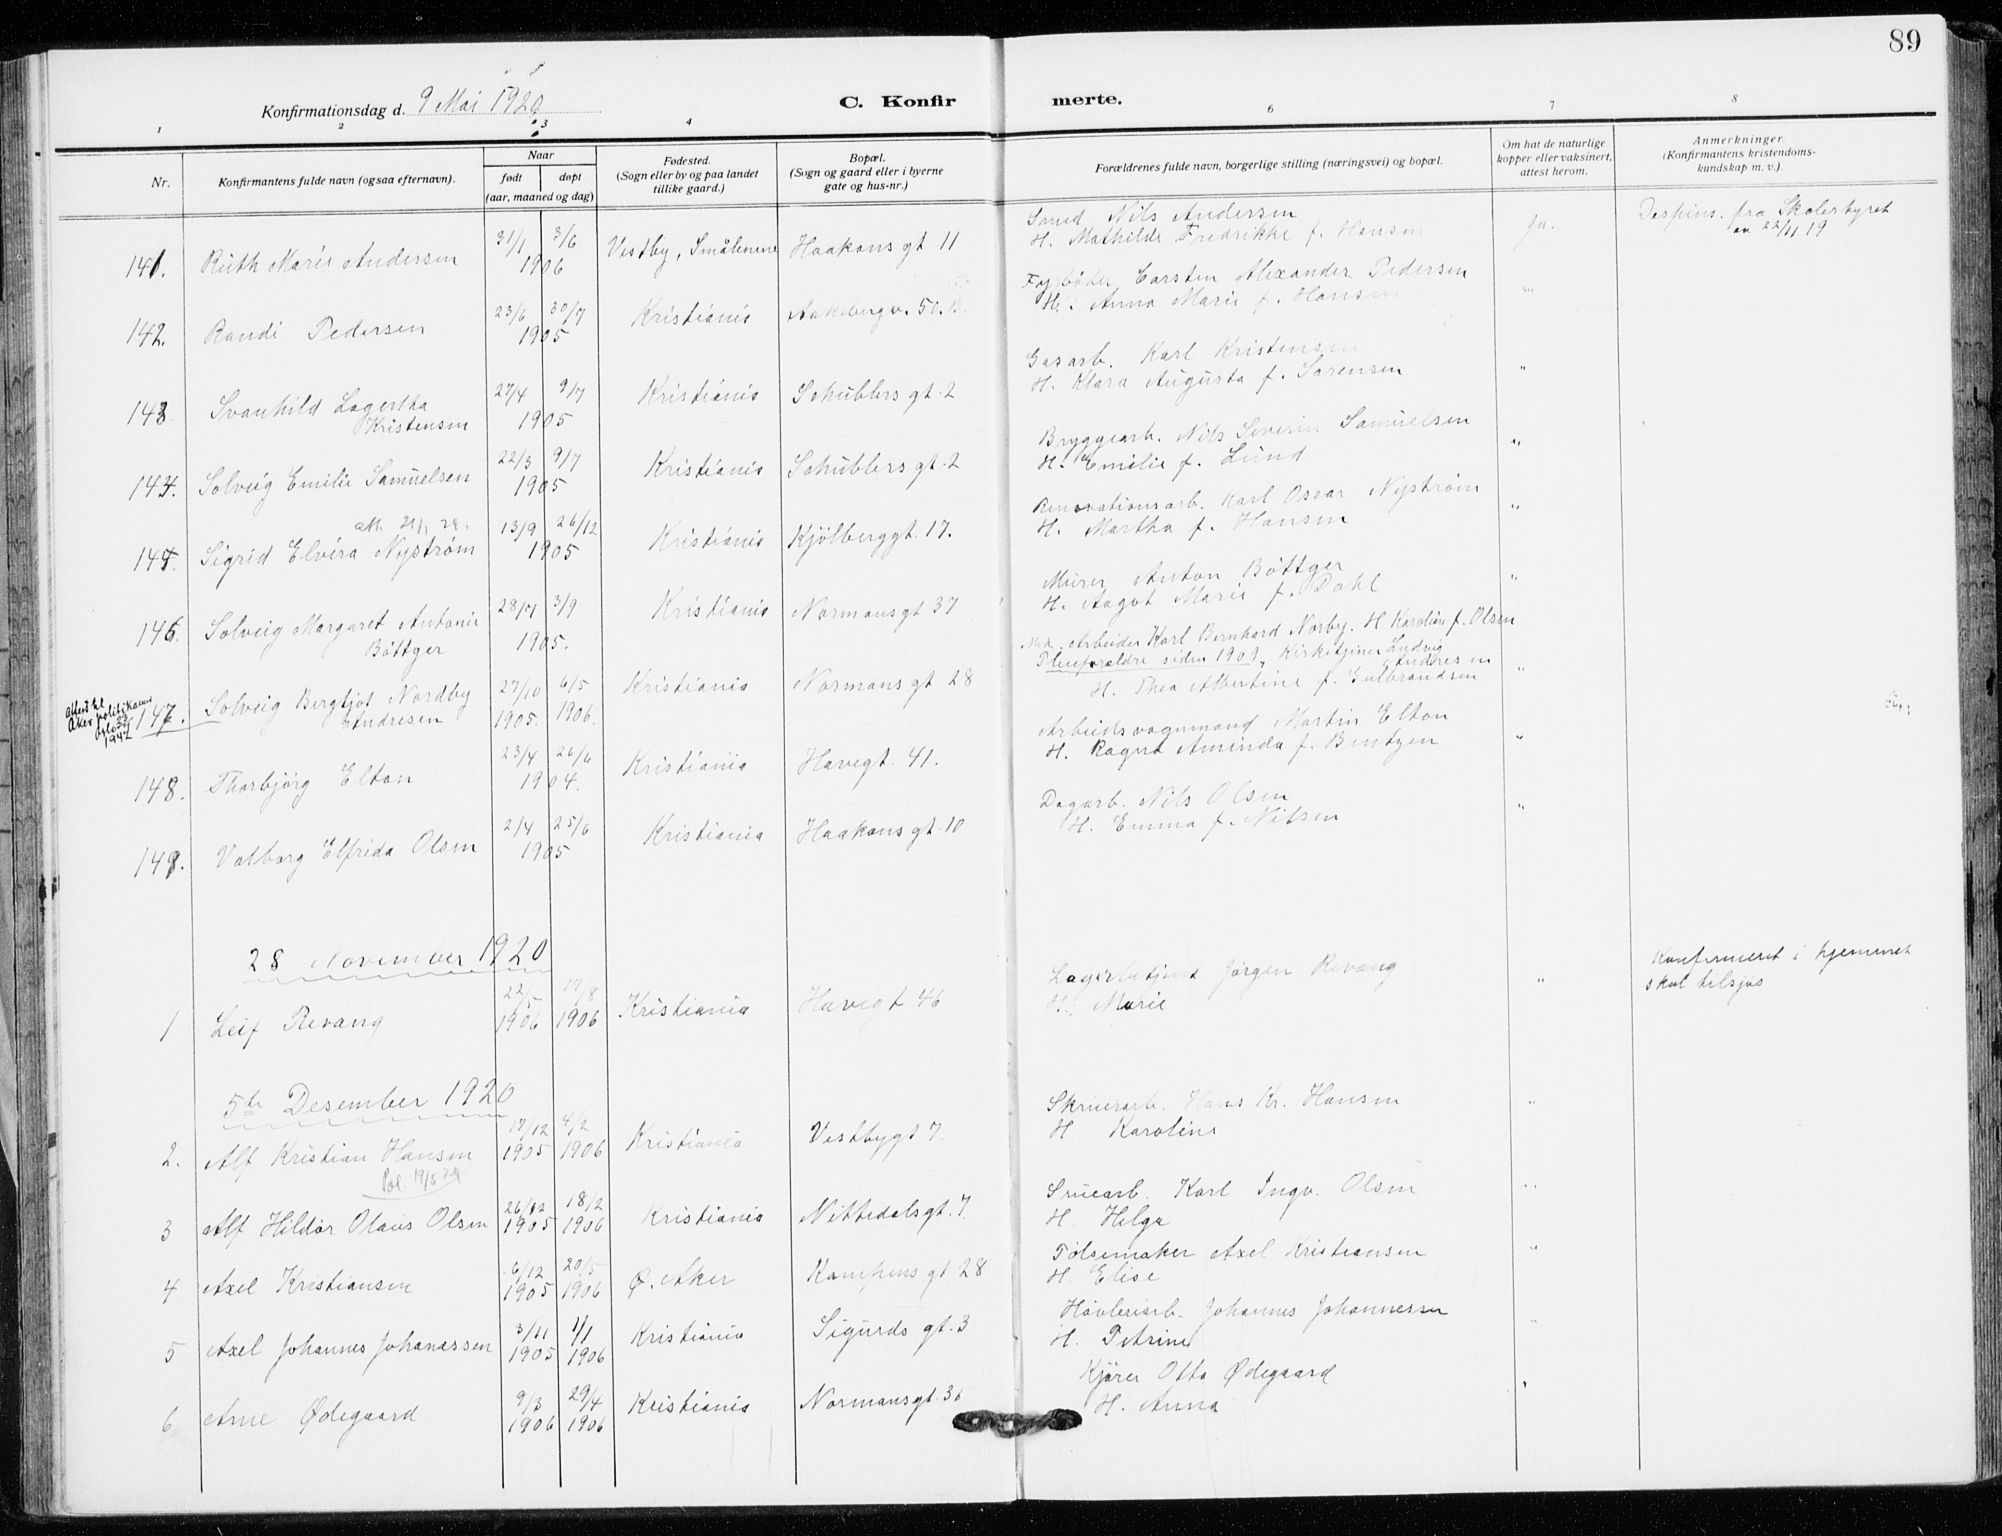 89
Konfirmationsdag d. 9 Mai 1920
C. Konfirmerte.
1 2 3 4 6 7 8
Nr.
Konfirmantens fulde navn (ogsaa efternavn).
Naar
født døpt
(aar, maaned og dag)
Fødested.
(Sogn eller by og paa landet
tillike gaard.)
Bopæl.
(Sogn og gaard eller i byerne
gate og hus-nr.)
Forældrenes fulde navn, borgerlige stilling (næringsvei) og bopæl.
Om hat de naturlige
kopper eller vaksinert,
attest herom.
Anmerkninger.
(Konfirmantens kristendoms-
kundskap m. v.).
141. Ruth Marie Andersen 31/1 3/6 1906 Vestby, Smålenene Haakons gt 11
Smed Nils Andersen
H. Mathilde Fredrikke f. Hansen
ja.
Dispens. fra Skolestyret
av 22/11 19
142. Randi Pedersen 23/6 30/7 1905 Kristiania Aakebergv. 50. B.
Carsten Alexander Pedersen
H. Anna Marie f. Hansen
"
143. Svanhild Lagertha
Kristensen 27/4 9/7 1905 Kristiania Schüblers gt. 2
Gasarb. Karl Kristensen
H. Klara Augusta f. Sørensen
"
144. Solveig Emilie Samuelsen 22/3 9/7 1905 Kristiania Schüblers gt. 2
Bryggearb. Nils Severin Samuelsen
H. Emilie f. Lund
"
att. 21/1 24.
145. Sigrid Elvira Nystrøm 13/9 26/12 1905 Kristiania Kjölberggt. 17.
Renovationsarb. Karl Oscar Nystrøm
H. Martha f. Hansen
"
146. Solveig Margaret Antonie
Böttger 28/7 3/9 1905. Kristiania Normansgt 37
Murer Anton Böttger
H. Aagot Marie f. Dahl
"
Aker politikamer
1947
147. Solveig Bergljot Nordby
Andresen 27/10 1905. 6/5 1906. Kristiania Normans gt. 28
Mek. Arbeider Karl Bernhard Norby. H Karoline f. Olsen
Pleieforældre siden 1909, Kirketjener Ludvig
Andresen
H. Thea Albertine f. Gulbrandsen
"
148. Thorbjörg Elton 23/4 26/6 1904. Kristiania Havegt. 41.
Arbeidsvognmand Martin Elton
H. Ragna Aminda f. Bentzen
"
149. Valborg Elfrida Olsen 2/4 25/6 1905 Kristiania Haakons gt. 10
Dagarb. Nils Olsen
H. Emma f. Nilsen
"
28 November 1920
1 Leif Revang 22/5 1906 17/8 1906 Kristiania Havegt 46
Lagerbetjent Jørgen Revang
H. Marie
"
Konfirmeret i hjemmet
skal tilsjøs
5te Desember 1920
2. Alf Kristian Hansen 17/12 1905 4/2 1906 Kristiania Vestbygt 7.
Pol 19/5 24
Skruearb. Hans Kr. Hansen
H. Karoline
"
3 Alf Hildor Olaus Olsen 26/12 1905 18/2 1906 Kristiania Nittedalsgt. 7.
Sruearb. Karl Ingv. Olsen
H. Helga
"
4 Axel Kristiansen 6/12 1905 20/5 1906 Ø. Aker Kampens gt 28
Pølsemaker Axel Kristiansen
H. Elise
"
5 Axel Johannes Johanessen 3/11 1905 1/1 1906 Kristiania Sigurds gt. 3
Høvleriarb. Johannes Johannessen
H. Petrine
"
6 Arne Ødegaard 9/3 1906 29/4 1906 Kristiania Normansgt. 36
Kjører Otto Ødegaard
H. Anna
"